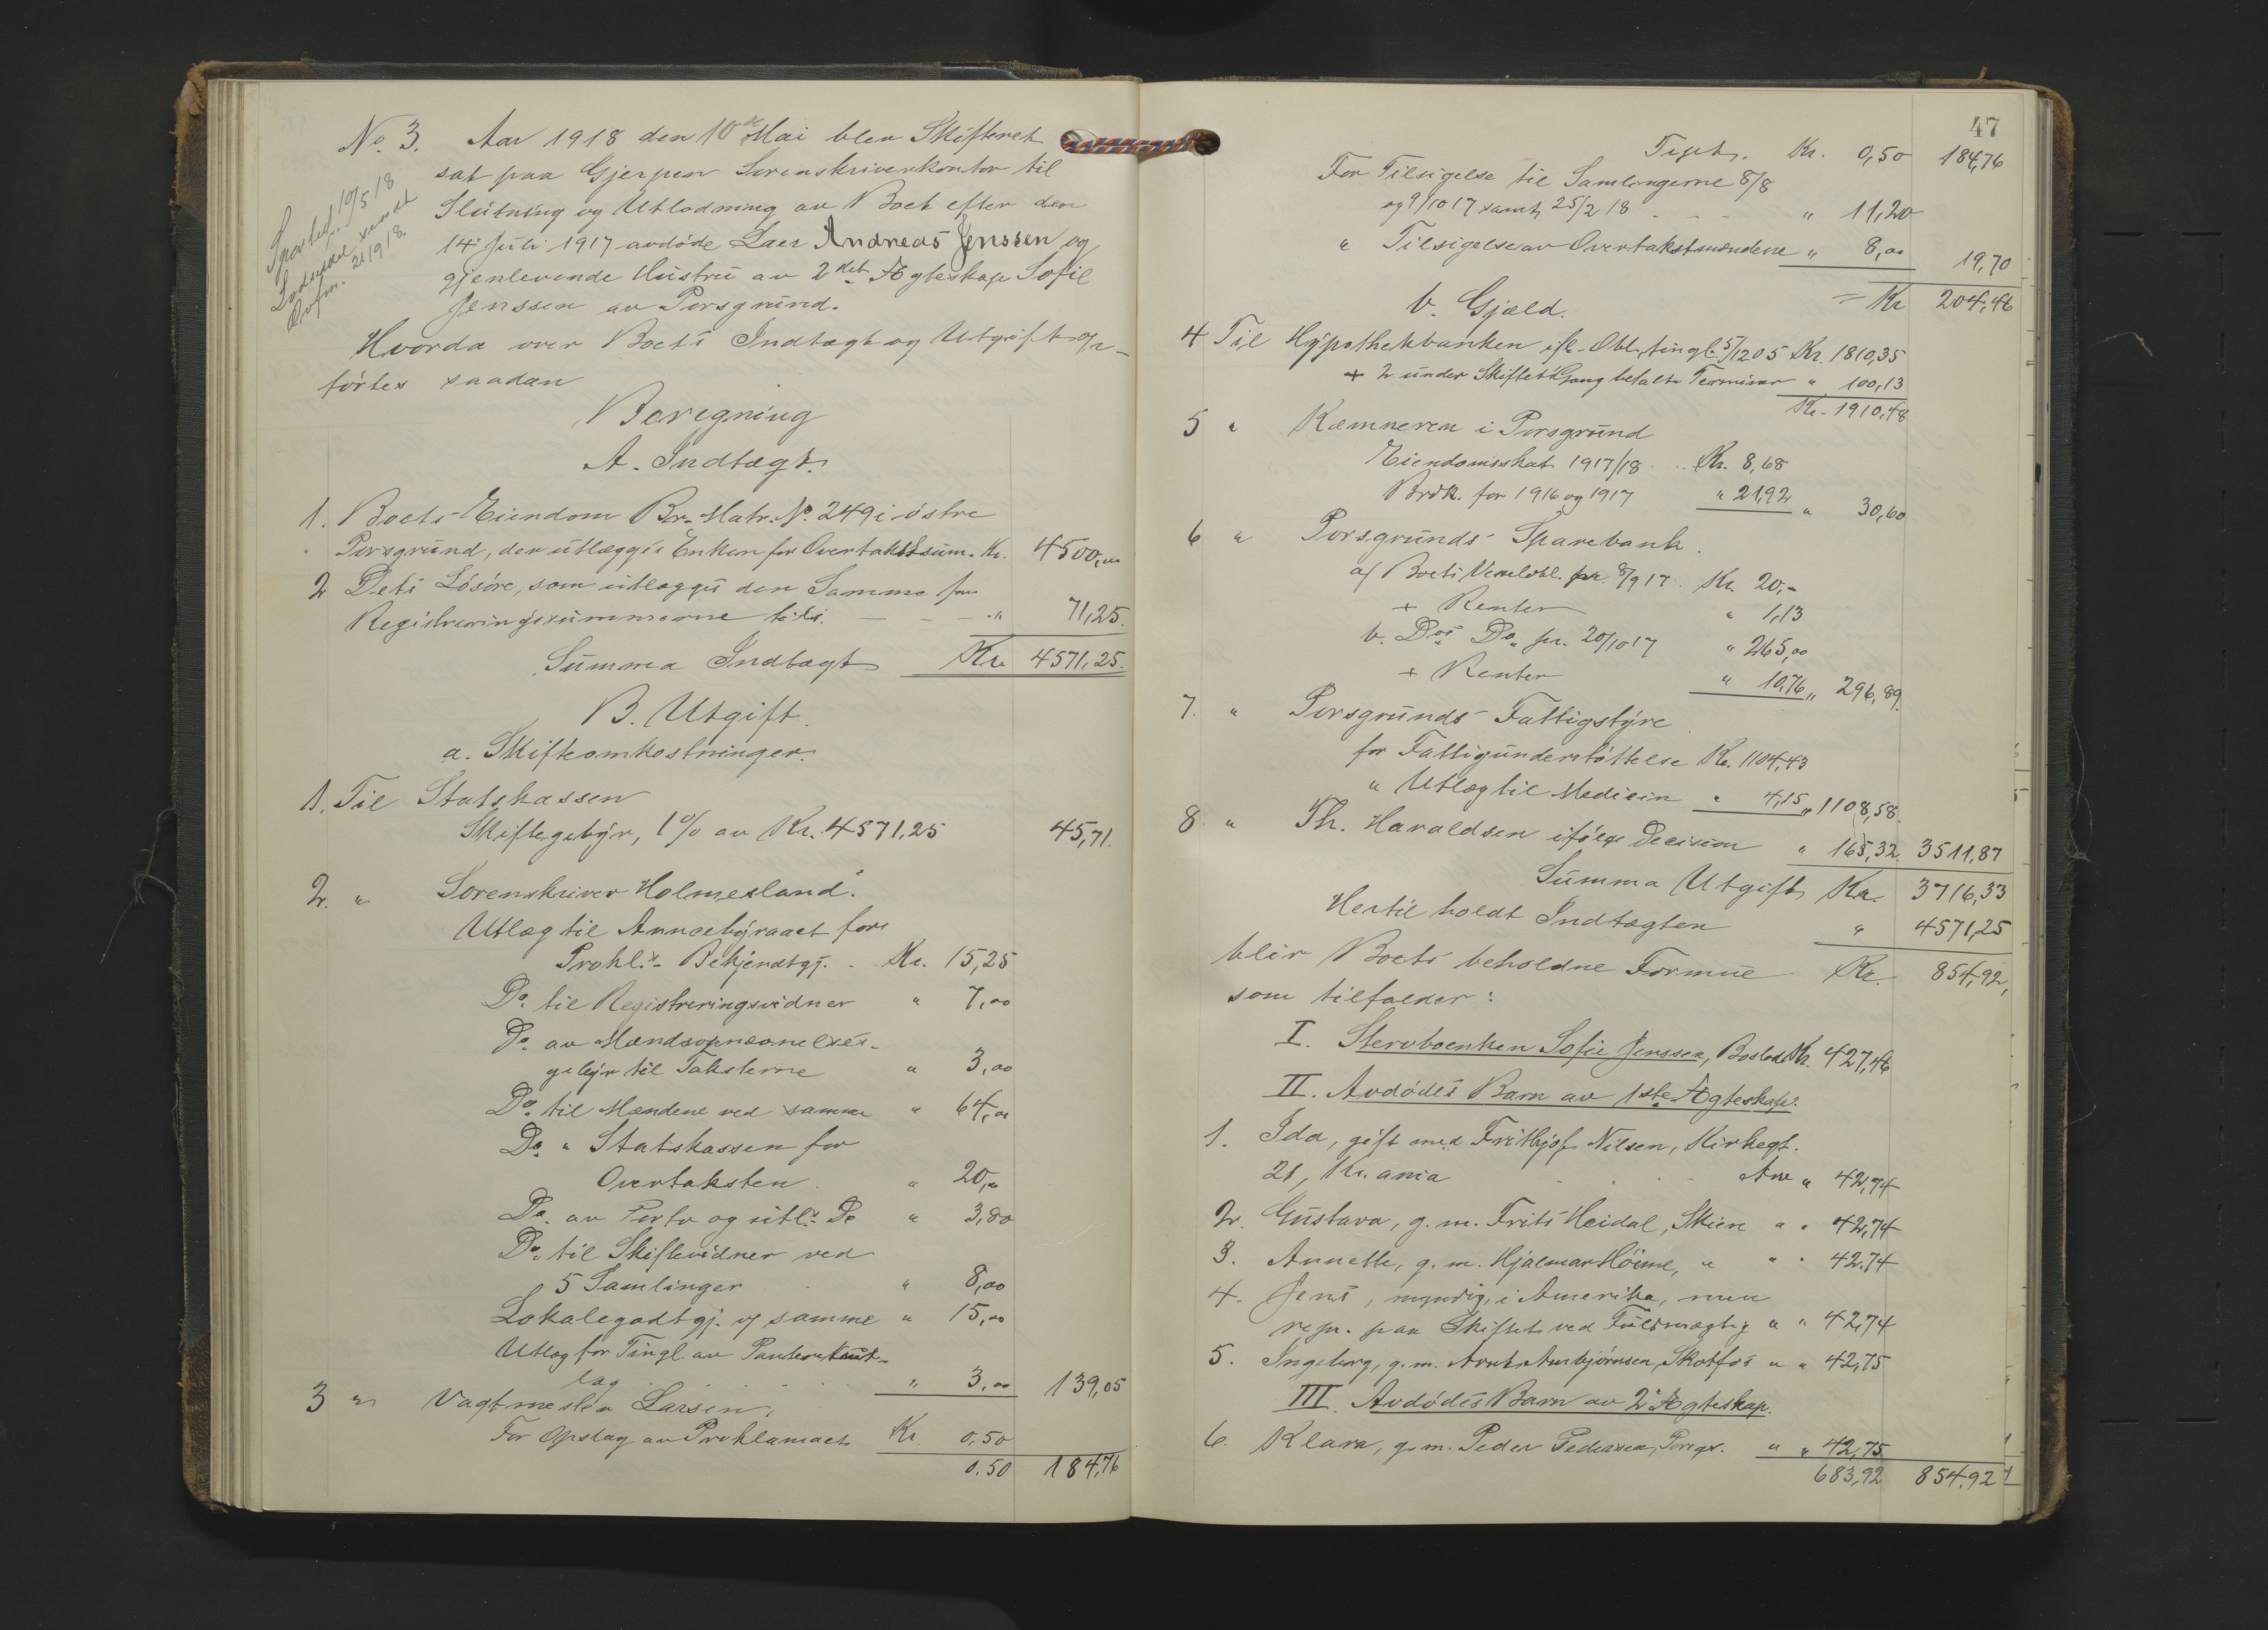 No. 3. Aar 1918 den 10de Mai blev Skifteret
sat paa Gjerpen Sorenskriverkontor til
Slutning og Utlodning av Boet efter den
14. Juli 1917 avdøde Lars Andreas Jenssen og
gjenlevende Hustru av 2det Ægteskap Sofie
Jenssen av Porsgrund.
10/5 18
21/9 18.
Hvorda over Boets Indtægt og Utgift op-
førtes saadan
Beregning
A. Indtægt.
1. Boets Eiendom Br. Matr. No. 249 i østre
Porsgrund, der utlægges Enken for Overtakstsum. Kr. 4500,00
2 Dets Løsøre, som utlægges den Samme for
Registreringssummerne til " 71,25.
Summa Indtægt Kr. 4571,25.
B. Utgift.
a. Skifteomkostninger.
1. Til Statskassen
Skiftegebyr, 1% av Kr. 4571,25 45,71.
2. " Sorenskriver Holmesland:
Utlæg til Annoncebyraaet for
Prokl.s Bekjendtgj. Kr. 15,25
Do. til Registreringsvidner " 7,00
Do. av Mændsopnævnelses-
gebyr til Taksterne " 3,00
Do. til Mændene ved samme " 64,00
Do. " Statskassen for
Overtaksten. " 20,00
Do. av Porto og Do " 3,80
Do. til Skiftevidner ved
5 Samlinger " 8,00
Lokalegodtgj. v/ samme " 15,00
Utlæg for Tingl. av
læg " 3,00 139,05
3 " Vagtmester Larsen,
For Opslag av Proklamaet Kr. 0,50
0,50 184,76
47
Kr. 0,50 184,76
For Tilsigelse til Samlingerne 8/8
og 9/10 17 samt 25/2 18 " 11,20
" Tilsigelse av Overtakstmændene " 8,00 19,70
= Kr 204,46
b. Gjæld.
4 Til Hypothekbanken ifl. Obl. tingl. 5/12 05 Kr. 1810,35
+ 2 under Skiftets Gang betalte Terminer " 100,13
Kr. 1910,48
5 " Kæmneren i Porsgrund
Eiendomsskat 1917/18 Kr. 8,68
Brdk. for 1916 og 1917 " 21,92 " 30,60
6 " Porsgrunds Sparebank.
a/ Boets Vexelobl. pr. 8/9 17 Kr. 20,-
+ Renter " 1,13
b. Dos Do. pr. 20/10 17 " 265,00
+ Renter " 10,76 " 296,89.
7. " Porsgrunds Fattigstyre
for Fattigunderstøttelse Kr. 1104,43
" Utlæg til Medicin " 4,15 " 1108,58.
8 " Th. Haraldsen ifølge Decision " 165,32. 3511,87
Summa Utgift Kr. 3716,33
Hertil holdt Indtægten " 4571,25
blir Boets beholdne Formue Kr. 854,92,
som tilfalder:
I. Stervboenken Sofie Jenssen, Boslod Kr. 427,46
II. Avdødes Barn av 1ste Ægteskap.
1. Ida, gift med Frithjof Nilsen, Kirkegt.
21, Kr.ania Arv " 42,74
2. Gustava, g. m. Frits Heidal, Skien " " 42,74
3. Annette, g. m. Hjalmar Høime, " " " 42,74
4. Jens, myndig, i Amerika, men
repr. paa Skiftet ved Fuldmægtig " " 42,74
5. Ingeborg, g. m. Arnbjørnsen, Skotfos " " 42,75
III. Avdødes Barn av 2' Ægteskap.
6. Klara, g. m. Peder Pedersen, Porsgr. " " 42,75
683,92 854,92